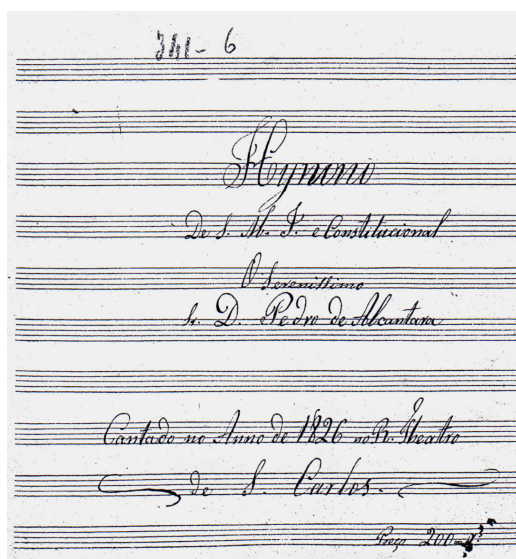 341-6
Hymno
De S. M. I. e Constitucional
O Serenissimo
Sr. D. Pedro de Alcantara
Cantado no Anno de 1826 no R. Theatro
de S. Carlos.
Preço 200